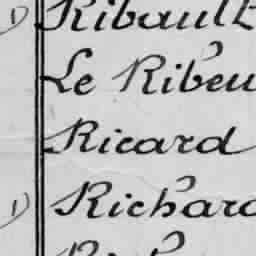 Ribault
Le Ribeu
Ricard
1) Richard